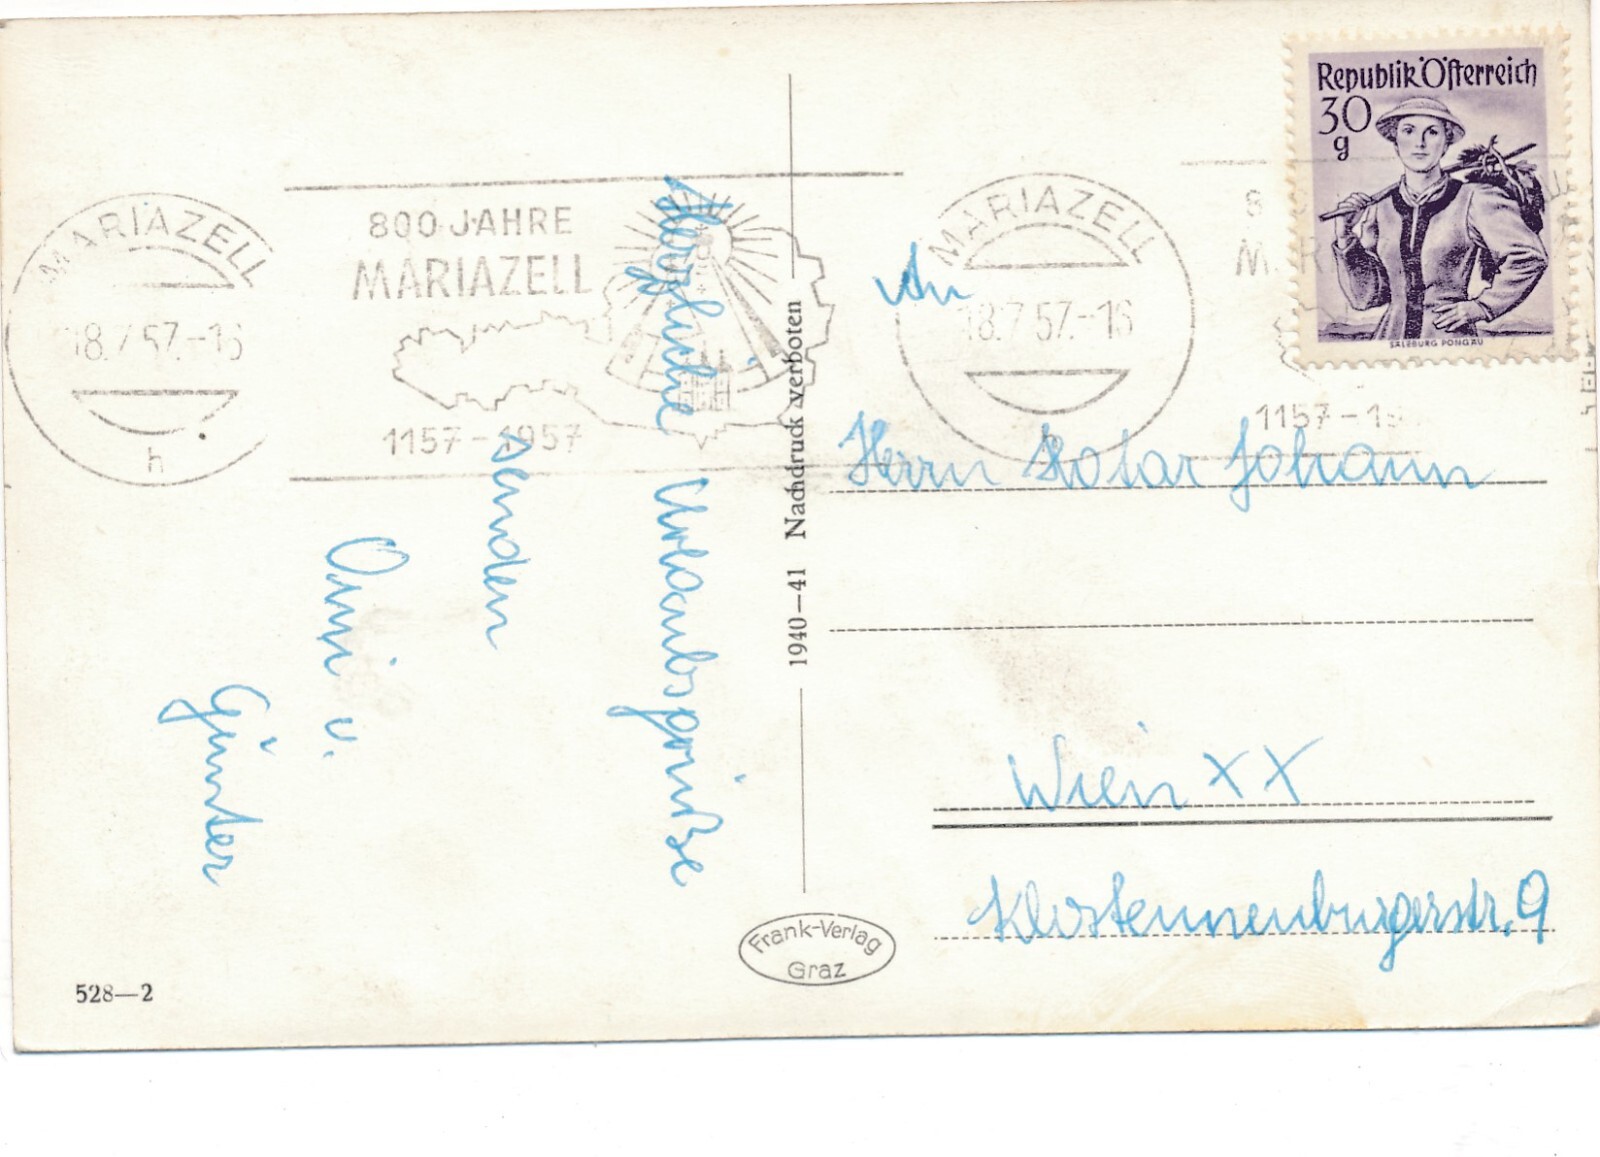 Herzliche Urlaubsgrüße
senden
Omi u.
Günter
528—2
MARIAZELL
18.7.57.-16
h
800 JAHRE
MARIAZELL
1157-1957
1940—41 Nachdruck verboten
Frank-Verlag
Graz
MARIAZELL
18.7.57.-16
h
1157-19
Republik Österreich
30
g
SALZBURG PONGAU
An
Herrn Kotar Johann
Wien XX
Klosterneuburgerstr. 9